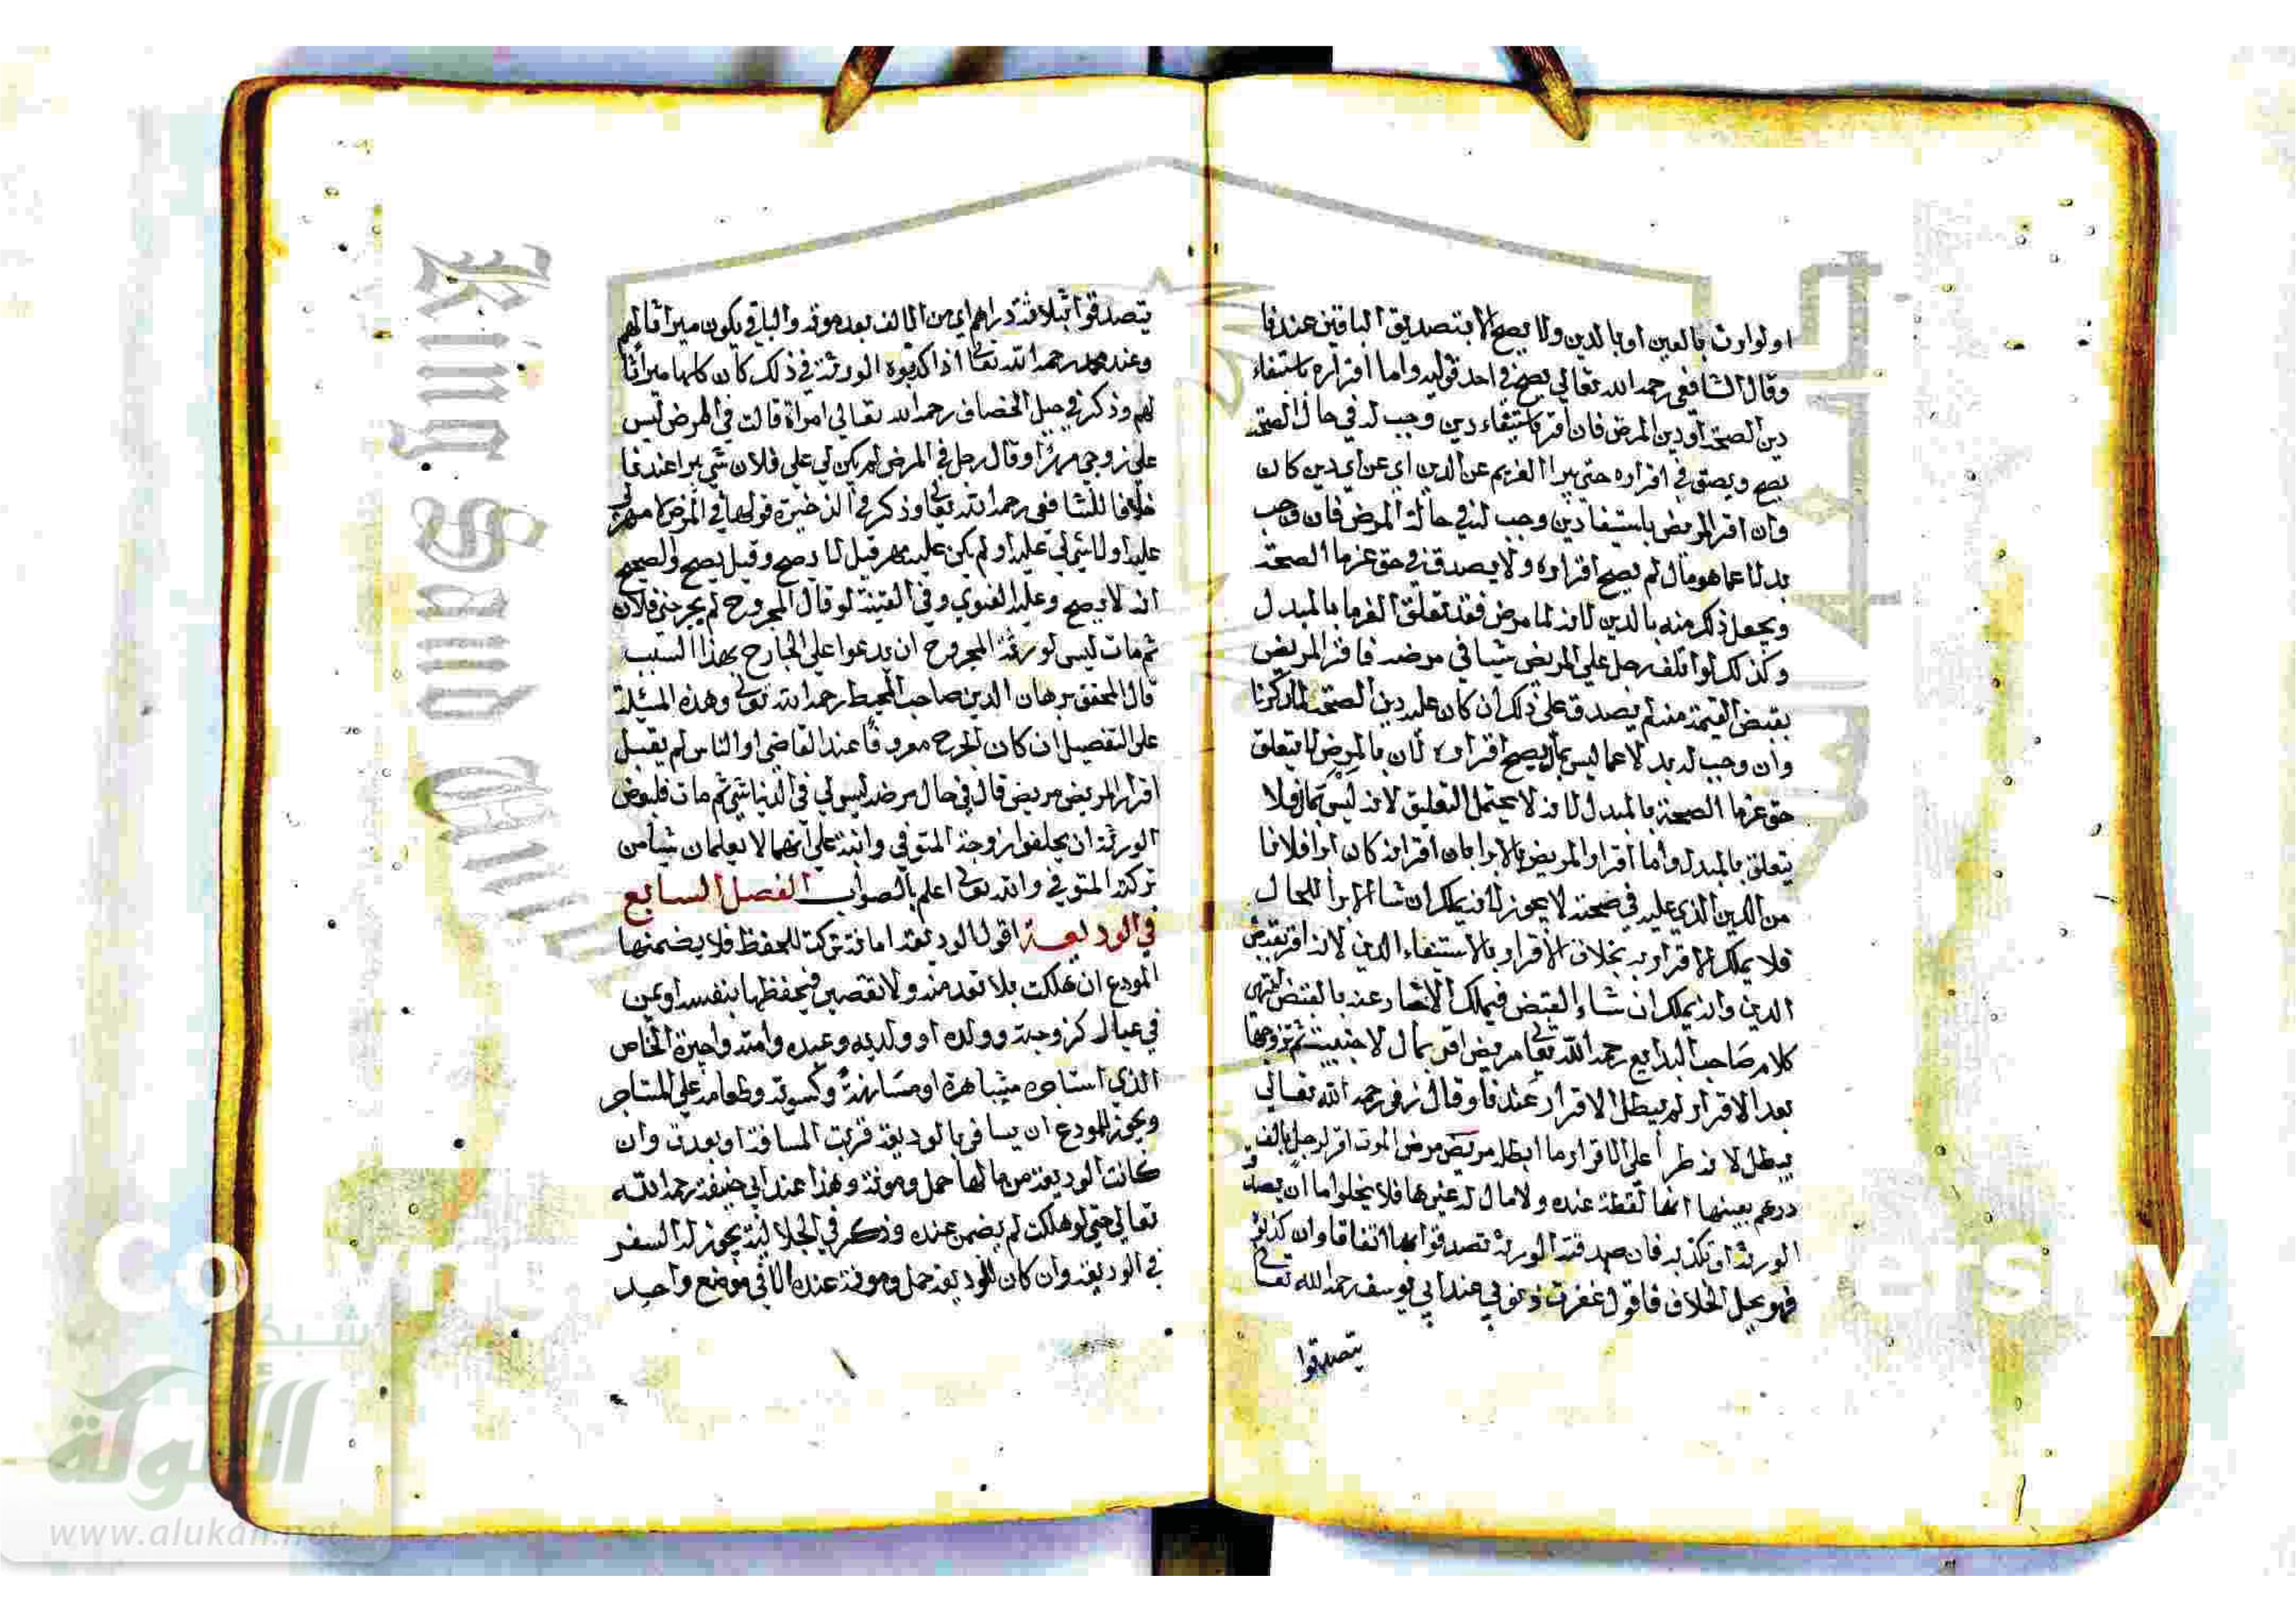 او لوارث بالعين او بالدين ولا يصح الا بتصديق الباقين عندنا
وقال الشافعي رحمه الله تعالي يصح في احد قوليه واما اقراره باستيفاء
دين الصحة او دين المرض فان اقر باستيفاء دين وجب له في حال الصحة
يصح ويصدق في اقراره حتى يبرا الغريم عن الدين اي عن اي دين كان
وان اقر المريض باستيفا دين وجب له في حالة المرض فان وجب
بدلا عما هو مال لم يصح اقراره ولا يصدق في حق غرما الصحة
ويجعل ذلك منه بالدين لانه لما مرض فقد تعلق الغرما بالمبدل
وكذلك لو اتلف رجل علي المريض شيا في مرضه فاقر المريض
بقبض القيمة منه لم يصدق على ذلك ان كان عليه دين الصحة لما ذكرنا
وان وجب له بدلا عما ليس بمال يصح اقراره لان بالمرض لا يتعلق
حق غرما الصحة بالمبدل لانه لا يحتمل التعليق لانه ليس بمال فلا
يتعلق بالمبدل واما اقرار المريض بالابرا بان اقر انه كان ابرا فلانا
من الدين الذي عليه في صحته لا يجوز لانه يملك ان شا الابرا للحال
فلا يملك الاقرار به بخلاف الاقرار بالاستيفاء الدين لانه اقر بقبض
الدين وانه يملك ان شاء القبض فيملك الاخبار عنه بالقبض انتهى
كلام صاحب البدايع رحمه الله تعا مريض اقر بمال لاجنبية ثم تزوجها
بعد الاقرار لم يبطل الاقرار عندنا وقال زفر رحمه الله تعالي
يبطل لانه طرأ على الاقرار ما ابطله مريض مرض الموت اقر لرجل بالف
درهم بعينها انها لقطة عنده ولا مال له غيرها فلا يخلوا اما ان يصدق
الورثة او تكذبه فان صدقته الورثة تصدقوا بها اتفاقا وان كذبوه
فهو محل الخلاف فاقول غفرت ذنوبي عند ابي يوسف رحمه الله تعا
يتصدقوا
يتصدقوا بثلاثة دراهم اي من الالف بعد موته والباقي يكون ميراثا لهم
وعند محمد رحمه الله تعا اذا كذبوه الورثة في ذلك كان كلها ميراثا
لهم وذكر في حيل الخصاف رحمه الله تعالي امراة قالت في المرض ليس
علي زوجي مهرا وقال رجل في المرض لم يكن لي علي فلان شي يبرا عندنا
خلافا للشافعي رحمه الله تعا وذكر في الذخيرة قولها في المرض لا مهر لي
عليه او لا شي لي عليه او لم يكن عليه مهر قيل لا يصح وقيل يصح والصحيح
انه لا يصح وعليه الفتوي وفي القنية لو قال المجروح لم يجرحني فلان
ثم مات ليس لورثة المجروح ان يدعوا علي الجارح بهذا السبب
قال المحقق برهان الدين صاحب المحيط رحمه الله تعا وهذه المسئلة
على التفصيل ان كان الجرح معروفا عند القاضي او الناس لم يقبل
اقرار المريض مريض قال في حال مرضه ليس لي في الدنيا شي ثم مات فلبعض
الورثة ان يحلفوا زوجة المتوفي وابنته علي انهما لا يعلمان شيأ من
تركة المتوفي والله تعا اعلم بالصواب الفصل السابع
في الوديعة اقول الوديعة امانة تركت للحفظ فلا يضمنها
المودع ان هلكت بلا تعد منه ولا تقصير فيحفظها بنفسه او بمن
في عياله كزوجته وولده او والديه وعبده وامته واجيره الخاص
الذي استاجره مشاهرة او مسانهة وكسوته وطعامه علي المستاجر
ويجوز للمودع ان يسافر بالوديعة قربت المسافة او بعدت وان
كانت الوديعة من مالها حمل ومونة وهذا عند ابي حنيفة رحمه الله
تعالي حتي لو هلكت لم يضمن عنده وذكر في الجلالية يجوز له السفر
في الوديعة وان كان للوديعة حمل ومونة عنده الا في موضع واحد
King Saud
شبكة
الألوكة
www.alukah.net